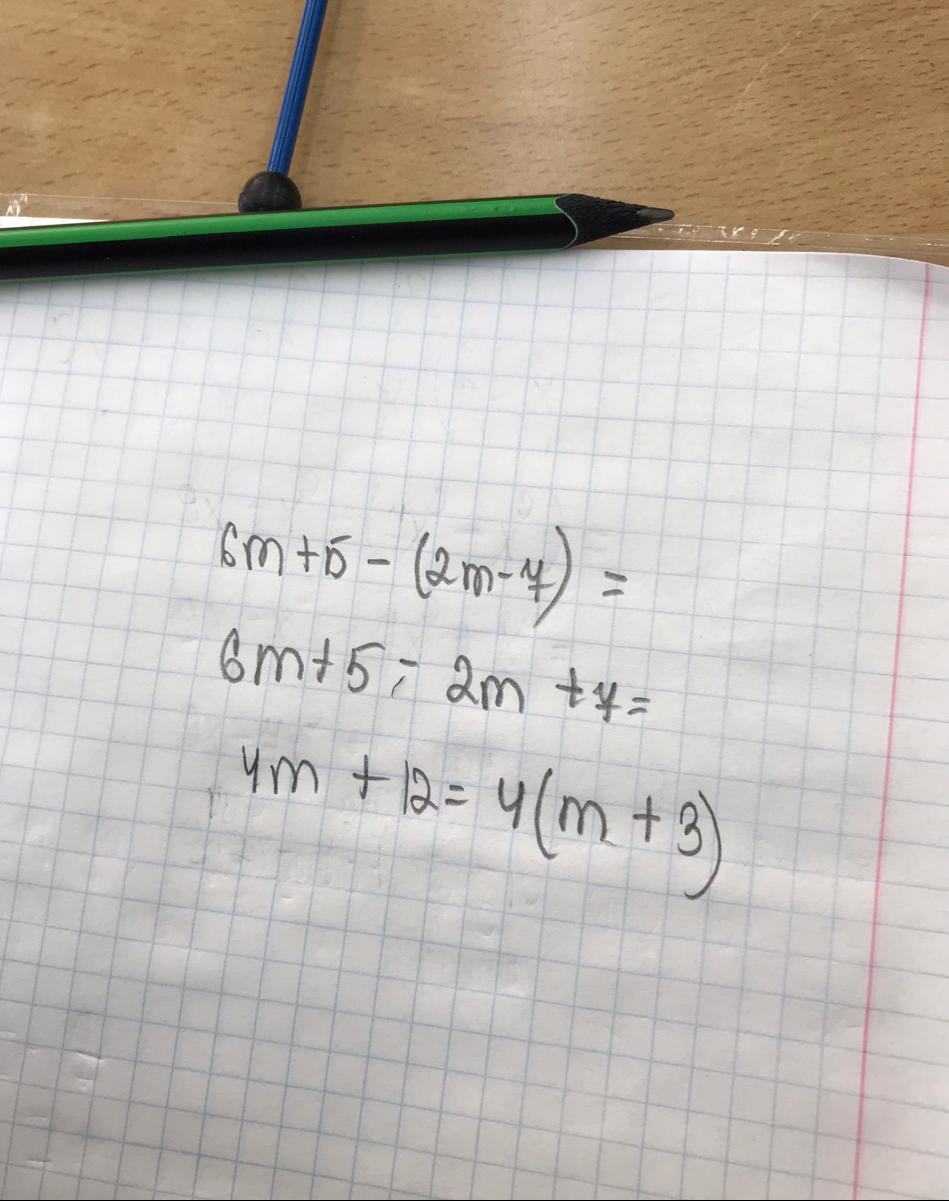 6m+5-(2m-7)=
6m+5-2m+7=
4m+12=4(m+3)